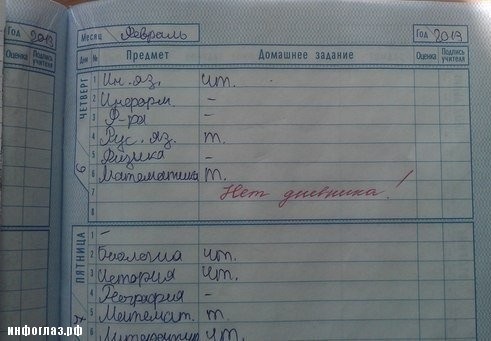 Год 2013
Месяц Февраль
Год 2013
Оценка Подпись учителя
Дни № Предмет Домашнее задание Оценка Подпись учителя
ЧЕТВЕРГ
1 Ин. яз. чт.
2 Информ. –
3 Ф-ра –
4 Рус. яз. т.
5 Физика –
6 Математика т.
7 Нет дневника!
8
ПЯТНИЦА
1 –
2 Биология чт.
3 История чт.
4 География –
5 Математ. т.
6 Литература чт.
инфоглаз.рф